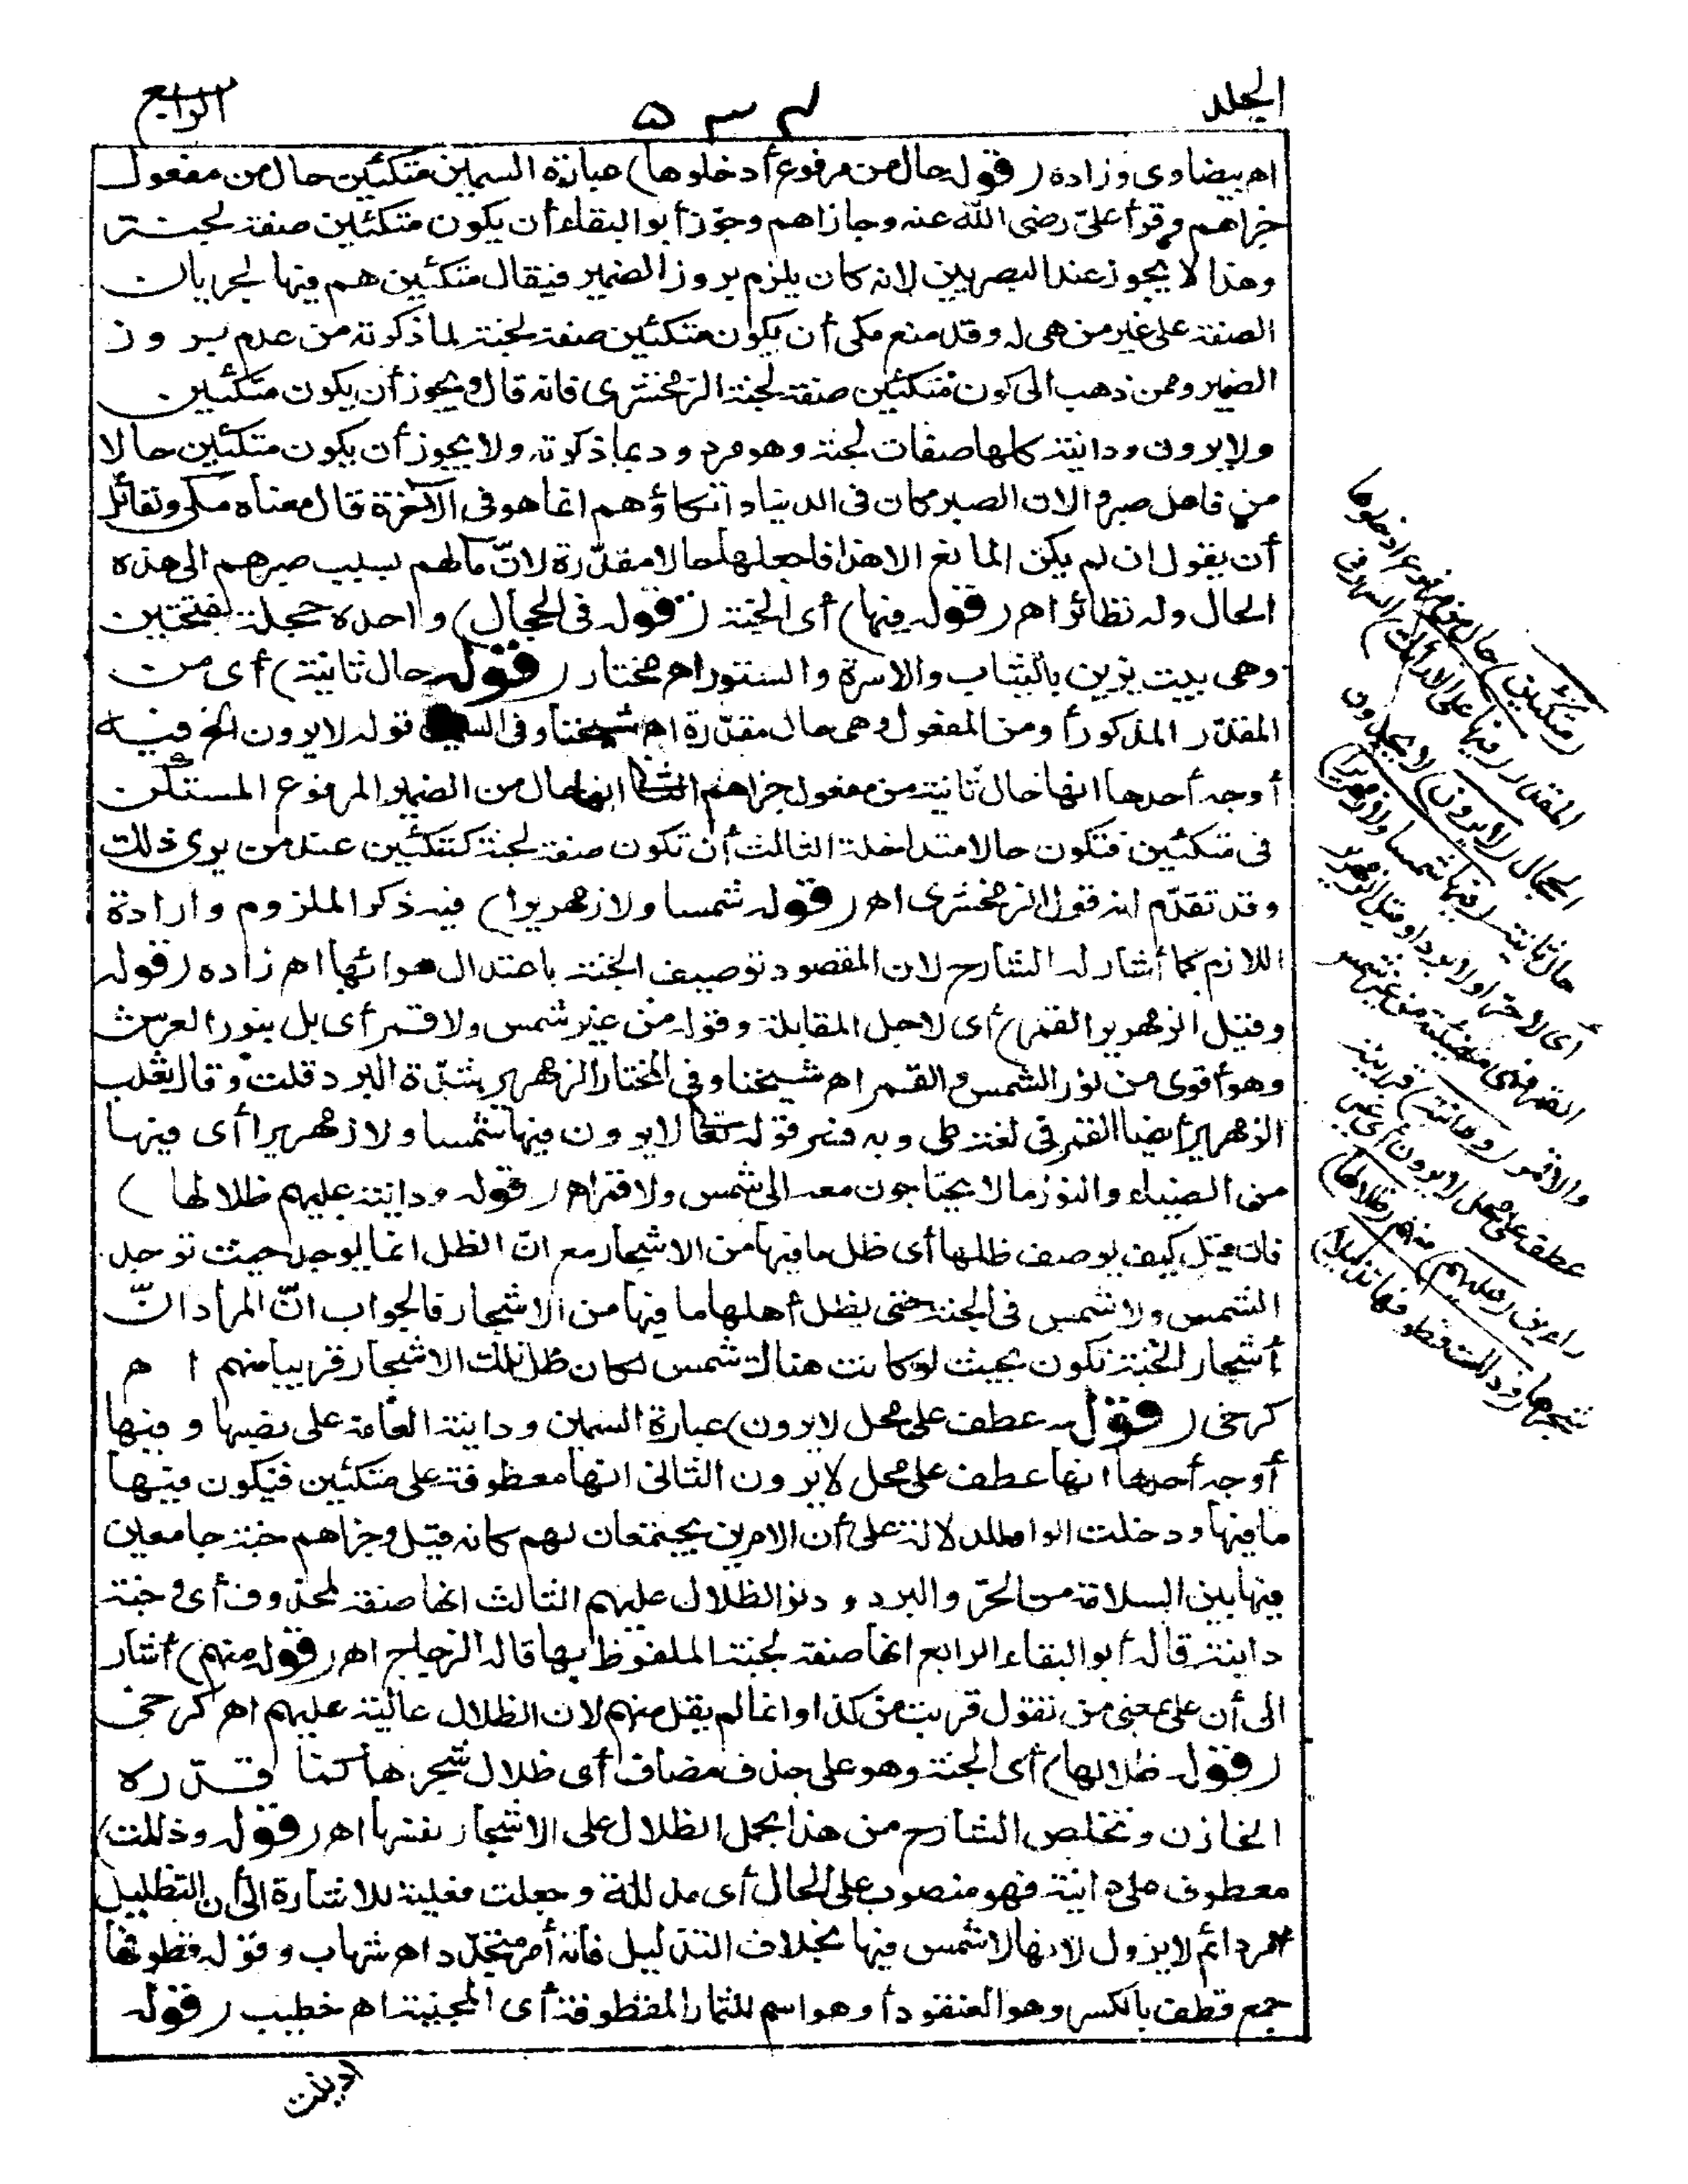 الجلد
٥٣٤
الرابع
اه بيضاوى وزاده (قوله حال من مرفوع أدخلوها) عبارة السمين متكئين حال من مفعول
جزاهم وقرأ علىّ رضى الله عنه وجازاهم وجوّز أبو البقاء أن يكون متكئين صفة لجنة
وهذا لا يجوز عند البصريين لانه كان يلزم بروز الضمير فيقال متكئين هم فيها لجريان
الصفة على غير من هى له وقد منع مكى أن يكون متكئين صفة لجنة لما ذكرته من عدم بروز
الضمير وممن ذهب الى كون متكئين صفة لجنة الزمخشرى فانه قال ويجوز أن يكون متكئين
ولايرون ودانية كلها صفات لجنة وهو مردود بماذكرته ولا يجوز أن يكون متكئين حالا
من فاعل صبروا لان الصبر كان فى الدنيا واتكاؤهم انما هو فى الآخرة قال معناه مكى ولقائل
أن يقول ان لم يكن المانع الاهذا فاجعلها حالا مقدّرة لانّ مآلهم بسبب صبرهم الى هذه
الحال وله نظائر اه (قوله فيها) أى الجنة (قوله فى الحجال) واحده حجلة بفتحتين
وهى بيت يزين بالثياب والاسرة والستور اه مختار (قوله حال ثانية) أى من
المقدّر المذكور أو من المفعول وهى حال مقدّرة اه شيخنا وفى السمين قوله لايرون الخ فيه
أوجه أحدها انها حال ثانية من مفعول جزاهم الثانى انها حال من الضمير المرفوع المستكن
فى متكئين فتكون حالا متداخلة الثالث أن تكون صفة لجنة كمتكئين عند من يرى ذلك
وقد تقدّم انه قول الزمخشرى اه (قوله شمسا ولا زمهريرا) فيه ذكر الملزوم وارادة
اللازم كما أشار له الشارح لان المقصود توصيف الجنة باعتدال هوائها اه زاده (قوله
وقيل الزمهرير القمر) أى لاجل المقابلة وقوله من غير شمس ولا قمر أى بل بنور العرش
وهو أقوى من نور الشمس والقمر اه شيخنا وفى المختار الزمهرير شدّة البرد قلت وقال ثعلب
الزمهرير أيضا القمر فى لغة طى وبه فسر قوله تعالى لايرون فيها شمسا ولا زمهريرا أى فيها
من الضياء والنور ما لا يحتاجون معه الى شمس ولا قمر اه (قوله ودانية عليهم ظلالها)
فان قيل كيف يوصف ظلها أى ظل ما فيها من الاشجار مع انّ الظل انما يوجد حيث توجد
الشمس ولا شمس فى الجنة حتى يظل أهلها ما فيها من الاشجار فالجواب انّ المراد انّ
أشجار الجنة تكون بحيث لو كانت هناك شمس لكان ظل تلك الاشجار قريبا منهم اه
كرخى (قوله عطف على محل لايرون) عبارة السمين ودانية العامة على نصبها وفيها
أوجه أحدها انها عطف على محل لايرون الثانى انها معطوفة على متكئين فيكون فيها
ما فيها ودخلت الواو للدلالة على أن الامرين يجتمعان لهم كانه قيل وجزاهم جنة جامعين
فيها بين السلامة من الحرّ والبرد ودنو الظلال عليهم الثالث انها صفة لمحذوف أى وجنة
دانية قاله أبو البقاء الرابع انها صفة لجنة الملفوظ بها قاله الزجاج اه (قوله منهم) أشار
الى أن على بمعنى من تقول قربت من كذا وانما لم يقل منهم لان الظلال عالية عليهم اه كرخى
(قوله ظلالها) أى الجنة وهو على حذف مضاف أى ظلال شجرها كما قدّره
الخازن وتخلص الشارح من هذا بحمل الظلال على الاشجار نفسها اه (قوله وذللت)
معطوف على دانية فهو منصوب على الحال أى مذللة وجعلت فعلية للاشارة الى أن التظليل
أمر دائم لايزول لانها لاشمس فيها بخلاف التذليل فانه أمر متجدّد اه شهاب وقوله قطوفها
جمع قطف بالكسر وهو العنقود أو هو اسم للثمار المقطوفة أى المجنية اه خطيب (قوله
(متكئين) حال من مرفوع ادخلوها
المقدر (فيها على الارائك) السرر فى
الحجال (لايرون) لايجدون
حال ثانية (فيها شمسا ولا زمهريرا)
أى لا حرا ولا بردا وقيل الزمهرير
القمر فهى مضيئة من غير شمس
ولا قمر (ودانية) قريبة
عطف على محل لايرون أى غير
رائين (عليهم) منهم (ظلالها)
شجرها (وذللت قطوفها تذليلا)